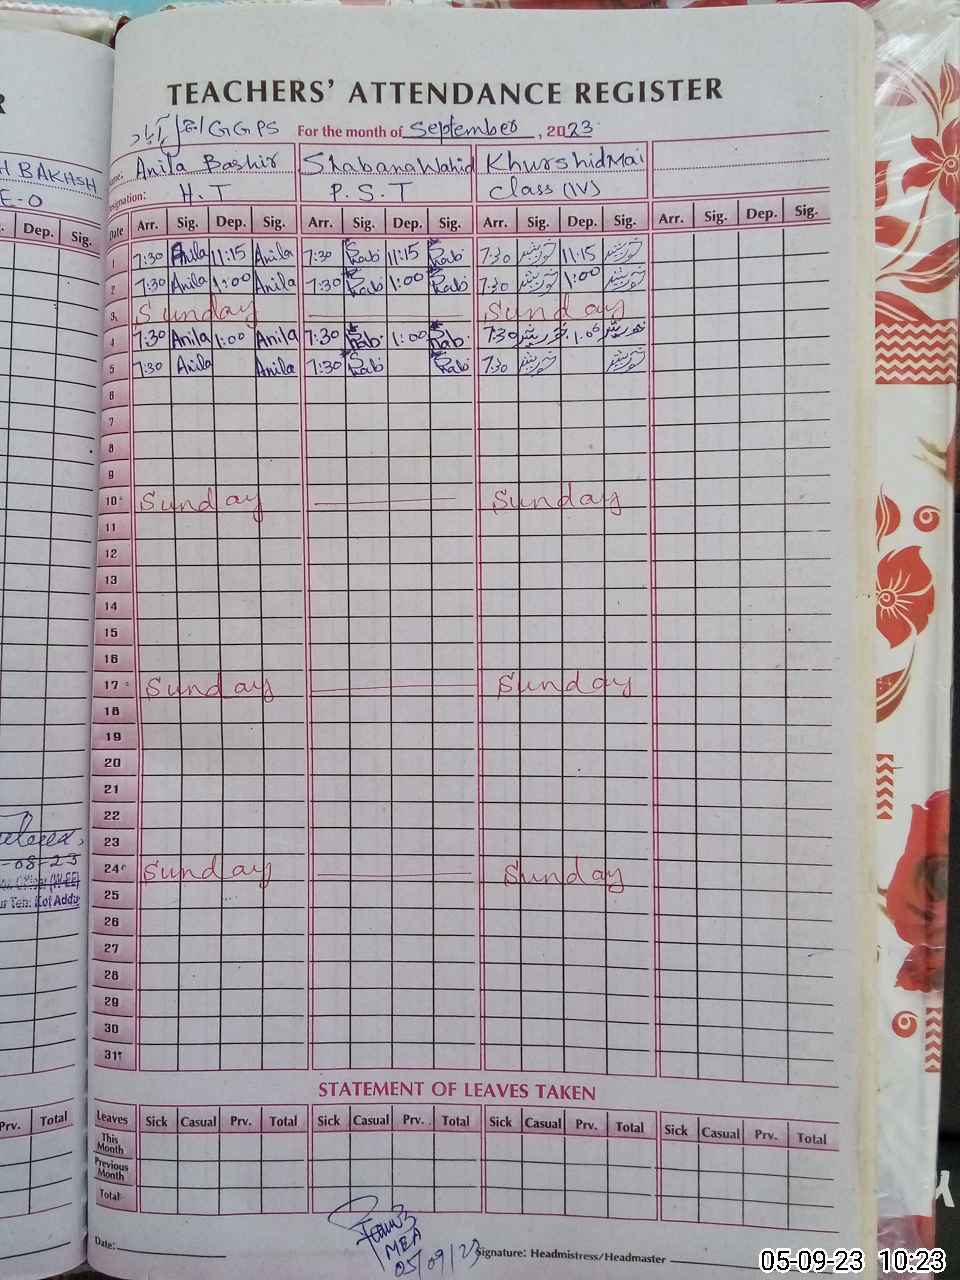 R
H BAKHSH
E-O
Dep. Sig.
TEACHERS' ATTENDANCE REGISTER
آباد GGPS For the month of September, 2023
Name: Anila Bashir Shabana Wahid Khurshid Mai
Designation: H.T P.S.T Class (IV)
Date Arr. Sig. Dep. Sig. Arr. Sig. Dep. Sig. Arr. Sig. Dep. Sig. Arr. Sig. Dep. Sig.
1 7:30 Anila 11:15 Anila 7:30 11:15 7:30 خورشید 11:15 خورشید
2 7:30 Anila 1:00 Anila 7:30 1:00 7:30 خورشید 1:00 خورشید
3 Sunday Sunday
4 7:30 Anila 1:00 Anila 7:30 1:00 7:30 خورشید 1:00 خورشید
5 7:30 Anila Anila 7:30 7:30 خورشید خورشید
6
7
8
9
10 Sunday Sunday
11
12
13
14
15
16
17 Sunday Sunday
18
19
20
21
22
23
24 Sunday Sunday
25
26
27
28
29
30
31
-08-23
(W-EE)
Kot Addu
STATEMENT OF LEAVES TAKEN
Prv. Total
Leaves Sick Casual Prv. Total Sick Casual Prv. Total Sick Casual Prv. Total Sick Casual Prv. Total
This Month
Previous Month
Total
MEA
05/09/23
Date: Signature: Headmistress/Headmaster
05-09-23 10:23